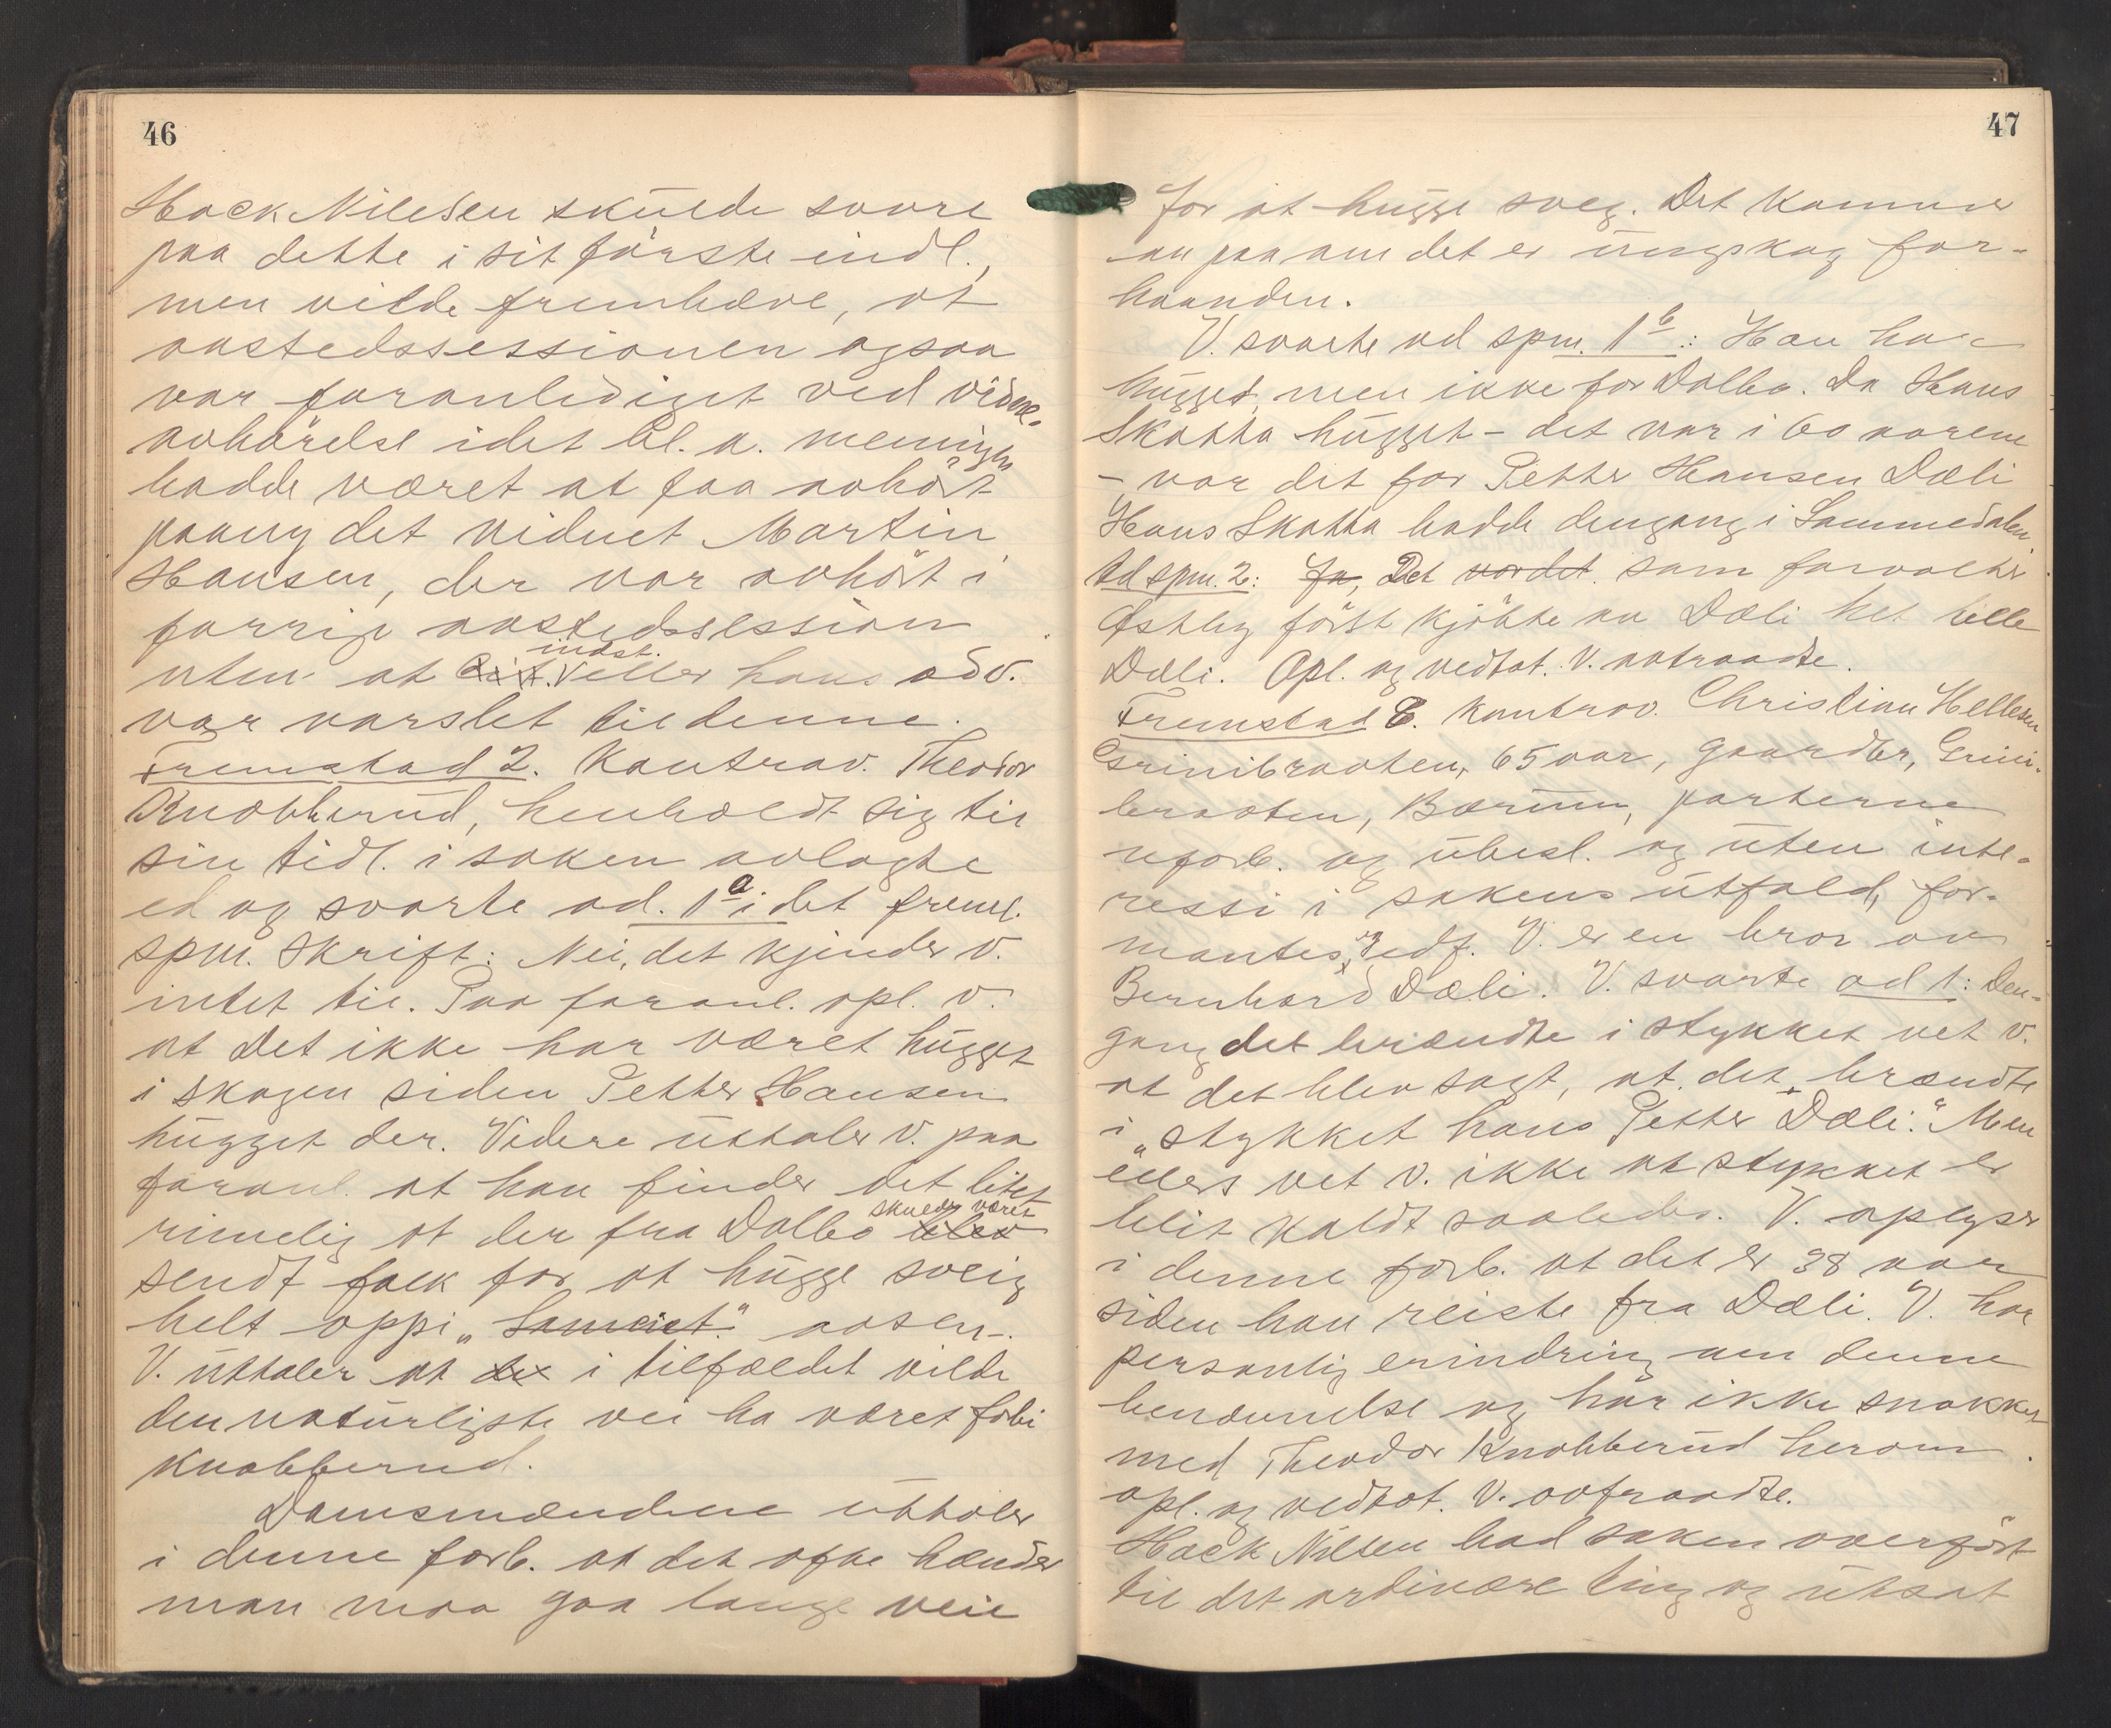 46
Hack Nilesen skulde svare
paa dette i sit første indl.,
men vilde fremhæve, at
aastedssessionen ogsaa
var foranlediget ved vidne-
avhørelse idet bl. a. meningen
hadde været at faa avhørt
paany det vidnet Martin
Hansen, der var avhørt i
forrige aastedssession
indst.
uten at eller hans adv.
var varslet til denne.
Fremstod 2. Kontrav. Theodor
Knabberud, henholdt sig til
sin tidl. i saken avlagte
ed og svarte ad. 1a i det freml.
spm. skrift: Nei, det kjender v.
intet til. Paa foranl. opl. v.
at det ikke har været hugget
i skogen siden Petter Hansen
hugget der. Videre uttaler v. paa
foranl. at han finder det litet
skulde været
rimelig at der fra Dalbo blev
sendt folk for at hugge sveig
helt oppi „Sameiet“ aasen.
V. uttaler at det i tilfældet vilde
den naturligste vei ha været forbi
Knabberud.
Domsmændene uttaler
i denne forb. at det ofte hænder
man maa gaa lange veie
47
for at hugge sveg. Det kommer
an paa om det er ungskog for-
haanden.
V. svarte ad spm. 1b: Han har
hugget, men ikke for Dalbo. Da Hans
Skotta hugget – det var i 60 aarene
– var det for Petter Hansen Dæli
Hans Skotta hadde dengang i Lommedalen.
Ad spm. 2: Ja, Det var det som farvoler
Østbey først kjøbte av Dæli het lille
Dæli. Opl. og vedtat. V. avtraadte.
Fremstod 3. kontrav. Christian Hellesen
Grinibraaten, 65 aar, gaardbr, Grini-
braaten, Bærum, parterne
uforb. og ubesl. og uten inte-
ressi i sakens utfald, for-
mantes, og edf. V. er en bror av
Bernhard Dæli. V. svarte ad 1: Den-
gang det brændte i stykket vet v.
at det blev sagt, at det brændte
i „stykket hans Petter Dæli.“ Men
ellers vet v. ikke at stykket er
blit kaldt saaledes. V. oplyser
i denne forb. at det er 38 aar
siden han reiste fra Dæli. V. har
personlig erindring om denne
benævnelse og har ikke snakket
med Theodor Knabberud herom.
opl. og vedtat. V. avtraadte.
Hack Nilsen bad saken overført
til det ordinære ting og utsat